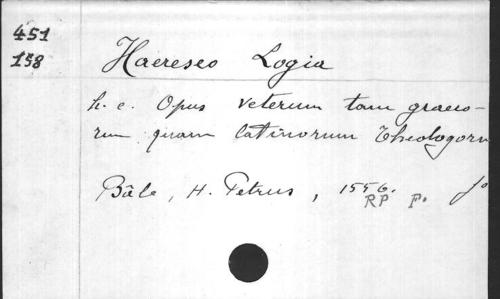 451
158
Haereseo Logia
h. e. Opus veterum tam graeco-
rum quam latinorum Theologorum
Bâle, H. Petrus, 1556. fo
RP P.